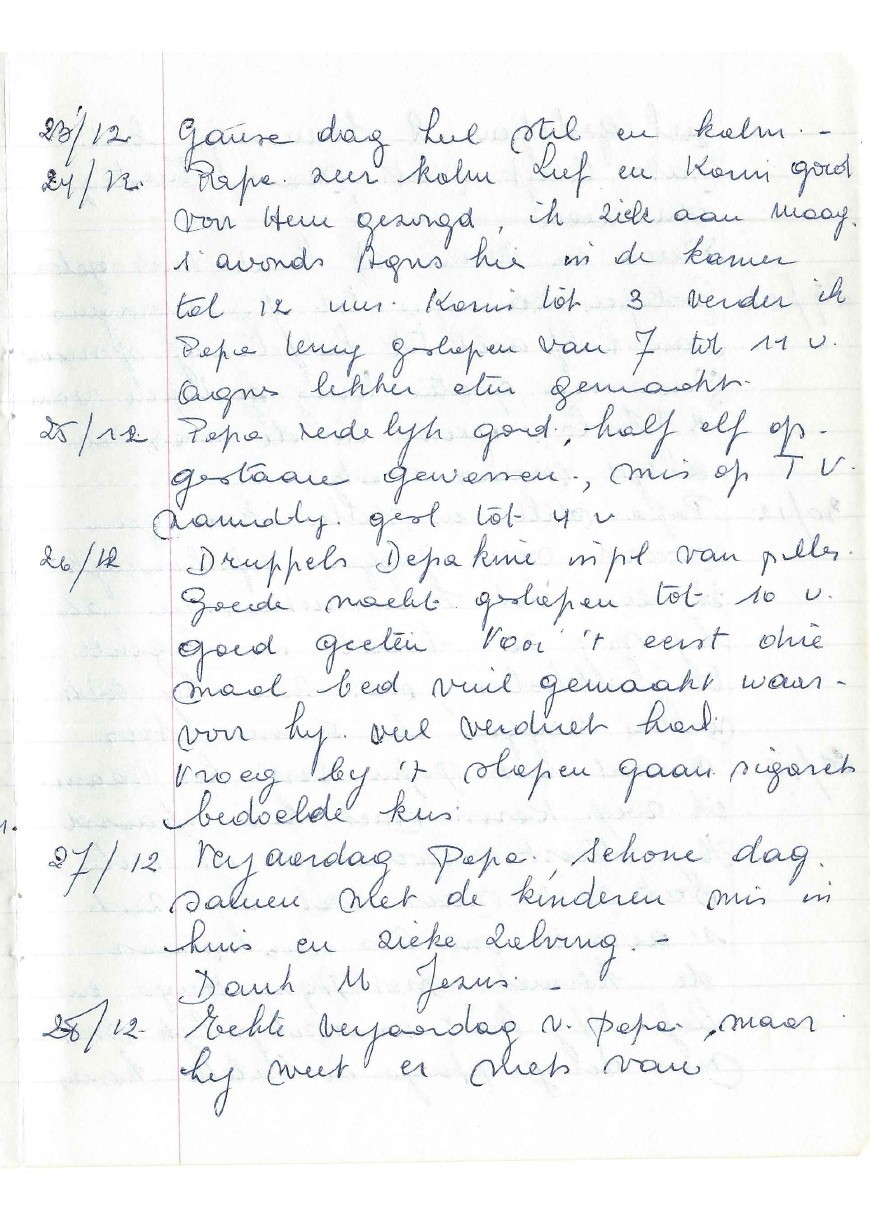 23/12. Ganse dag heel stil en kalm. -
24/12. Papa zeer kalm Lief en Korni goed
voor Hem gezorgd, ik ziek aan maag.
s' avonds Agnes hie in de kamer
tot 12 uur. Korni tot 3 verder ik
Papa terug geslapen van 7 tot 11 u.
Agnes lekker eten gemaakt.
25/12 Papa redelyk goed, half elf op-
gestaan gewessen., mis op T V.
namidd. gesl tot 4 u
26/12 Druppels Depakine in pl van pillen.
Goede nacht geslapen tot 10 u.
goed geeten Voor 't eerst drie
maal bed vuil gemaakt waar-
voor hy veel verdriet had.
Vroeg by 't slapen gaan sigaret
bedoelde kus.
27/12 Verjaardag Papa, schone dag.
Samen met de kinderen mis in
huis en zieke zalving. -
Dank U Jezus. -
28/12. Echte verjaardag v. Papa, maar
hy weet er niets van